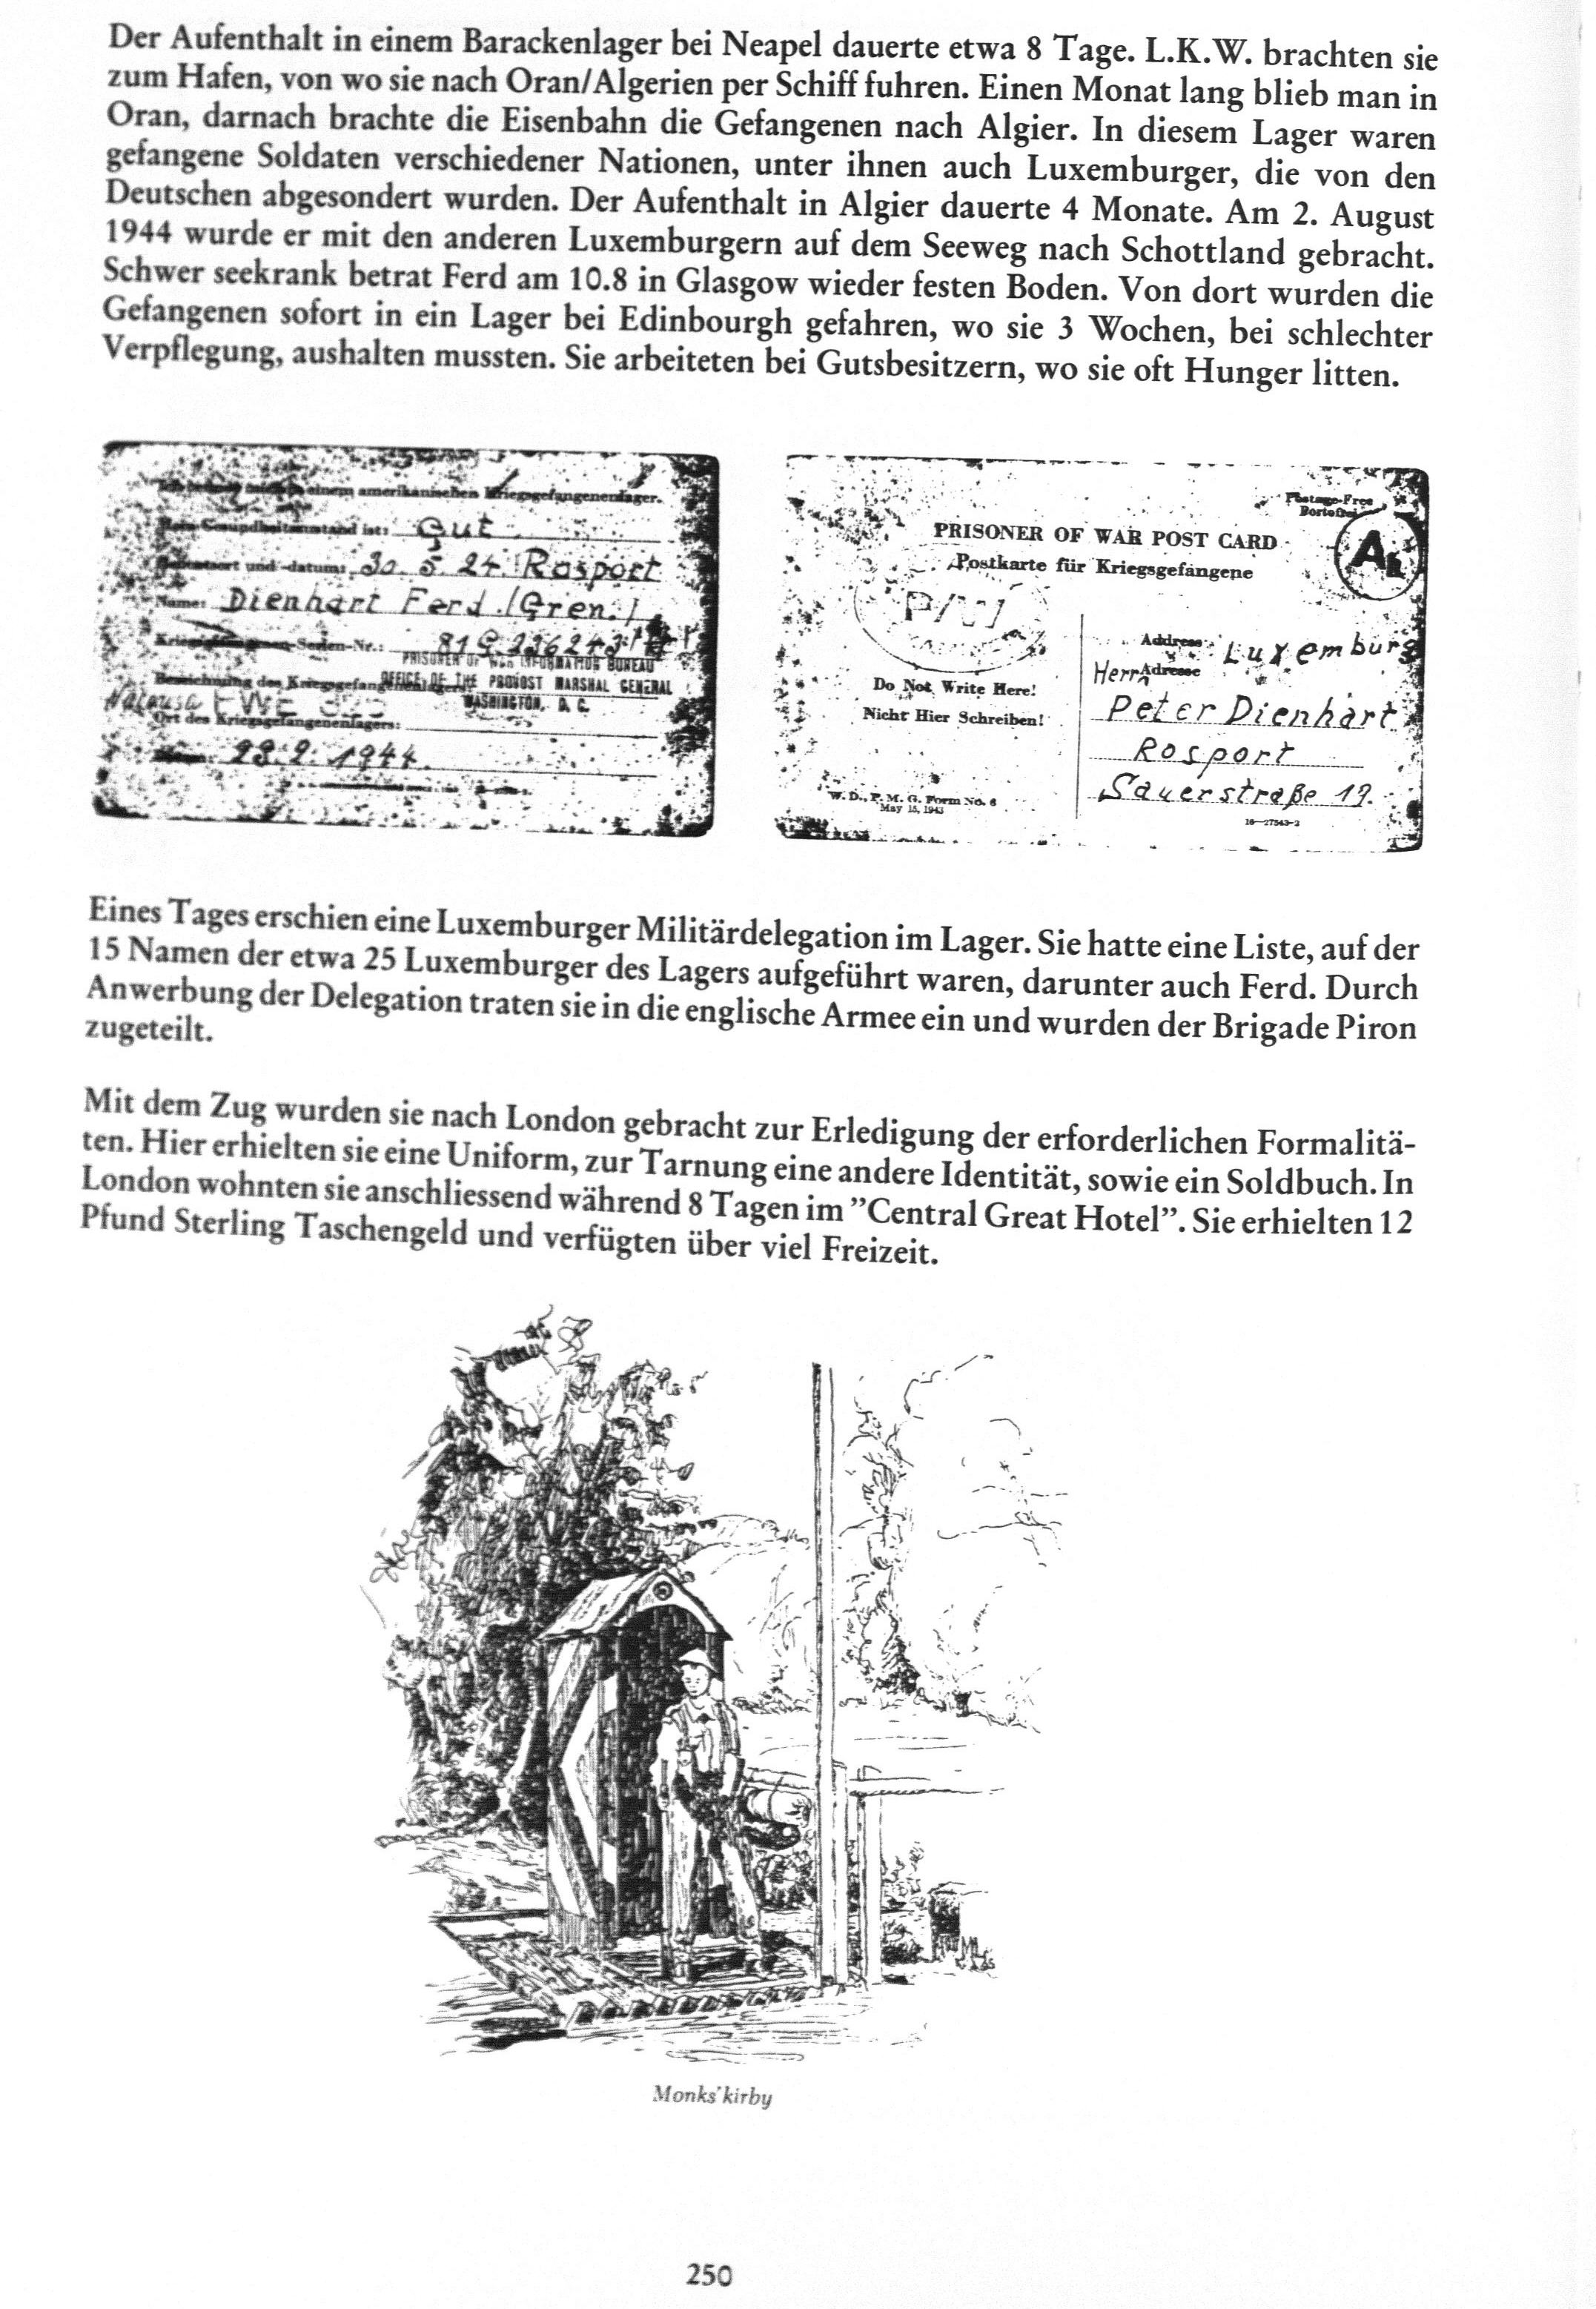 Der Aufenthalt in einem Barackenlager bei Neapel dauerte etwa 8 Tage. L.K.W. brachten sie
zum Hafen, von wo sie nach Oran/Algerien per Schiff fuhren. Einen Monat lang blieb man in
Oran, darnach brachte die Eisenbahn die Gefangenen nach Algier. In diesem Lager waren
gefangene Soldaten verschiedener Nationen, unter ihnen auch Luxemburger, die von den
Deutschen abgesondert wurden. Der Aufenthalt in Algier dauerte 4 Monate. Am 2. August
1944 wurde er mit den anderen Luxemburgern auf dem Seeweg nach Schottland gebracht.
Schwer seekrank betrat Ferd am 10.8 in Glasgow wieder festen Boden. Von dort wurden die
Gefangenen sofort in ein Lager bei Edinbourgh gefahren, wo sie 3 Wochen, bei schlechter
Verpflegung, aushalten mussten. Sie arbeiteten bei Gutsbesitzern, wo sie oft Hunger litten.
einem amerikanischen Kriegsgefangenenlager.
Mein Gesundheitszustand ist: Gut
Geburtsort und -datum: 30. 5. 24. Rosport
Name: Dienhart Ferd. (Gren.)
Kriegsgefangenen-Serien-Nr.: 81G.236243
PRISONER OF WAR INFORMATION BUREAU
Bezeichnung des Kriegsgefangenenlagers:
OFFICE OF THE PROVOST MARSHAL GENERAL
WASHINGTON, D. C.
PWE
Ort des Kriegsgefangenenlagers:
23.2.1944.
Postage-Free
Portofrei
PRISONER OF WAR POST CARD
Postkarte für Kriegsgefangene
P/W
Do Not Write Here!
Nicht Hier Schreiben!
W. D., P. M. G. Form No. 6
May 15, 1943
Address: Luxemburg
Herrn Adresse
Peter Dienhart
Rosport
Sauerstraße 19.
16—27543-2
Eines Tages erschien eine Luxemburger Militärdelegation im Lager. Sie hatte eine Liste, auf der
15 Namen der etwa 25 Luxemburger des Lagers aufgeführt waren, darunter auch Ferd. Durch
Anwerbung der Delegation traten sie in die englische Armee ein und wurden der Brigade Piron
zugeteilt.
Mit dem Zug wurden sie nach London gebracht zur Erledigung der erforderlichen Formalitä-
ten. Hier erhielten sie eine Uniform, zur Tarnung eine andere Identität, sowie ein Soldbuch. In
London wohnten sie anschliessend während 8 Tagen im ”Central Great Hotel”. Sie erhielten 12
Pfund Sterling Taschengeld und verfügten über viel Freizeit.
Monks'kirby
250